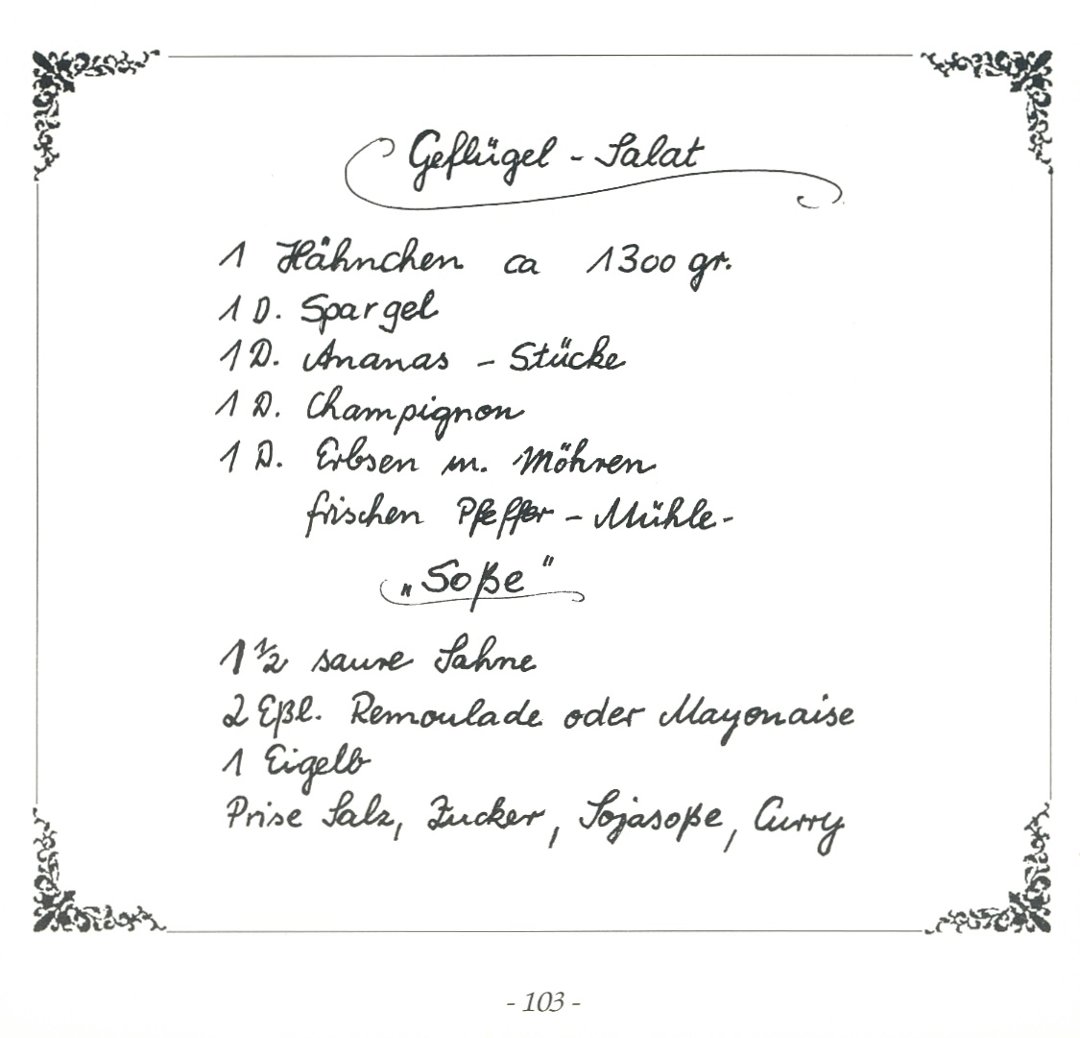 Geflügel - Salat
1 Hähnchen ca 1300 gr.
1 D. Spargel
1 D. Ananas - Stücke
1 D. Champignon
1 D. Erbsen m. Möhren
frischen Pfeffer - Mühle -
„Soße"
1 1/2 saure Sahne
2 Eßl. Remoulade oder Mayonaise
1 Eigelb
Prise Salz, Zucker, Sojasoße, Curry
- 103 -